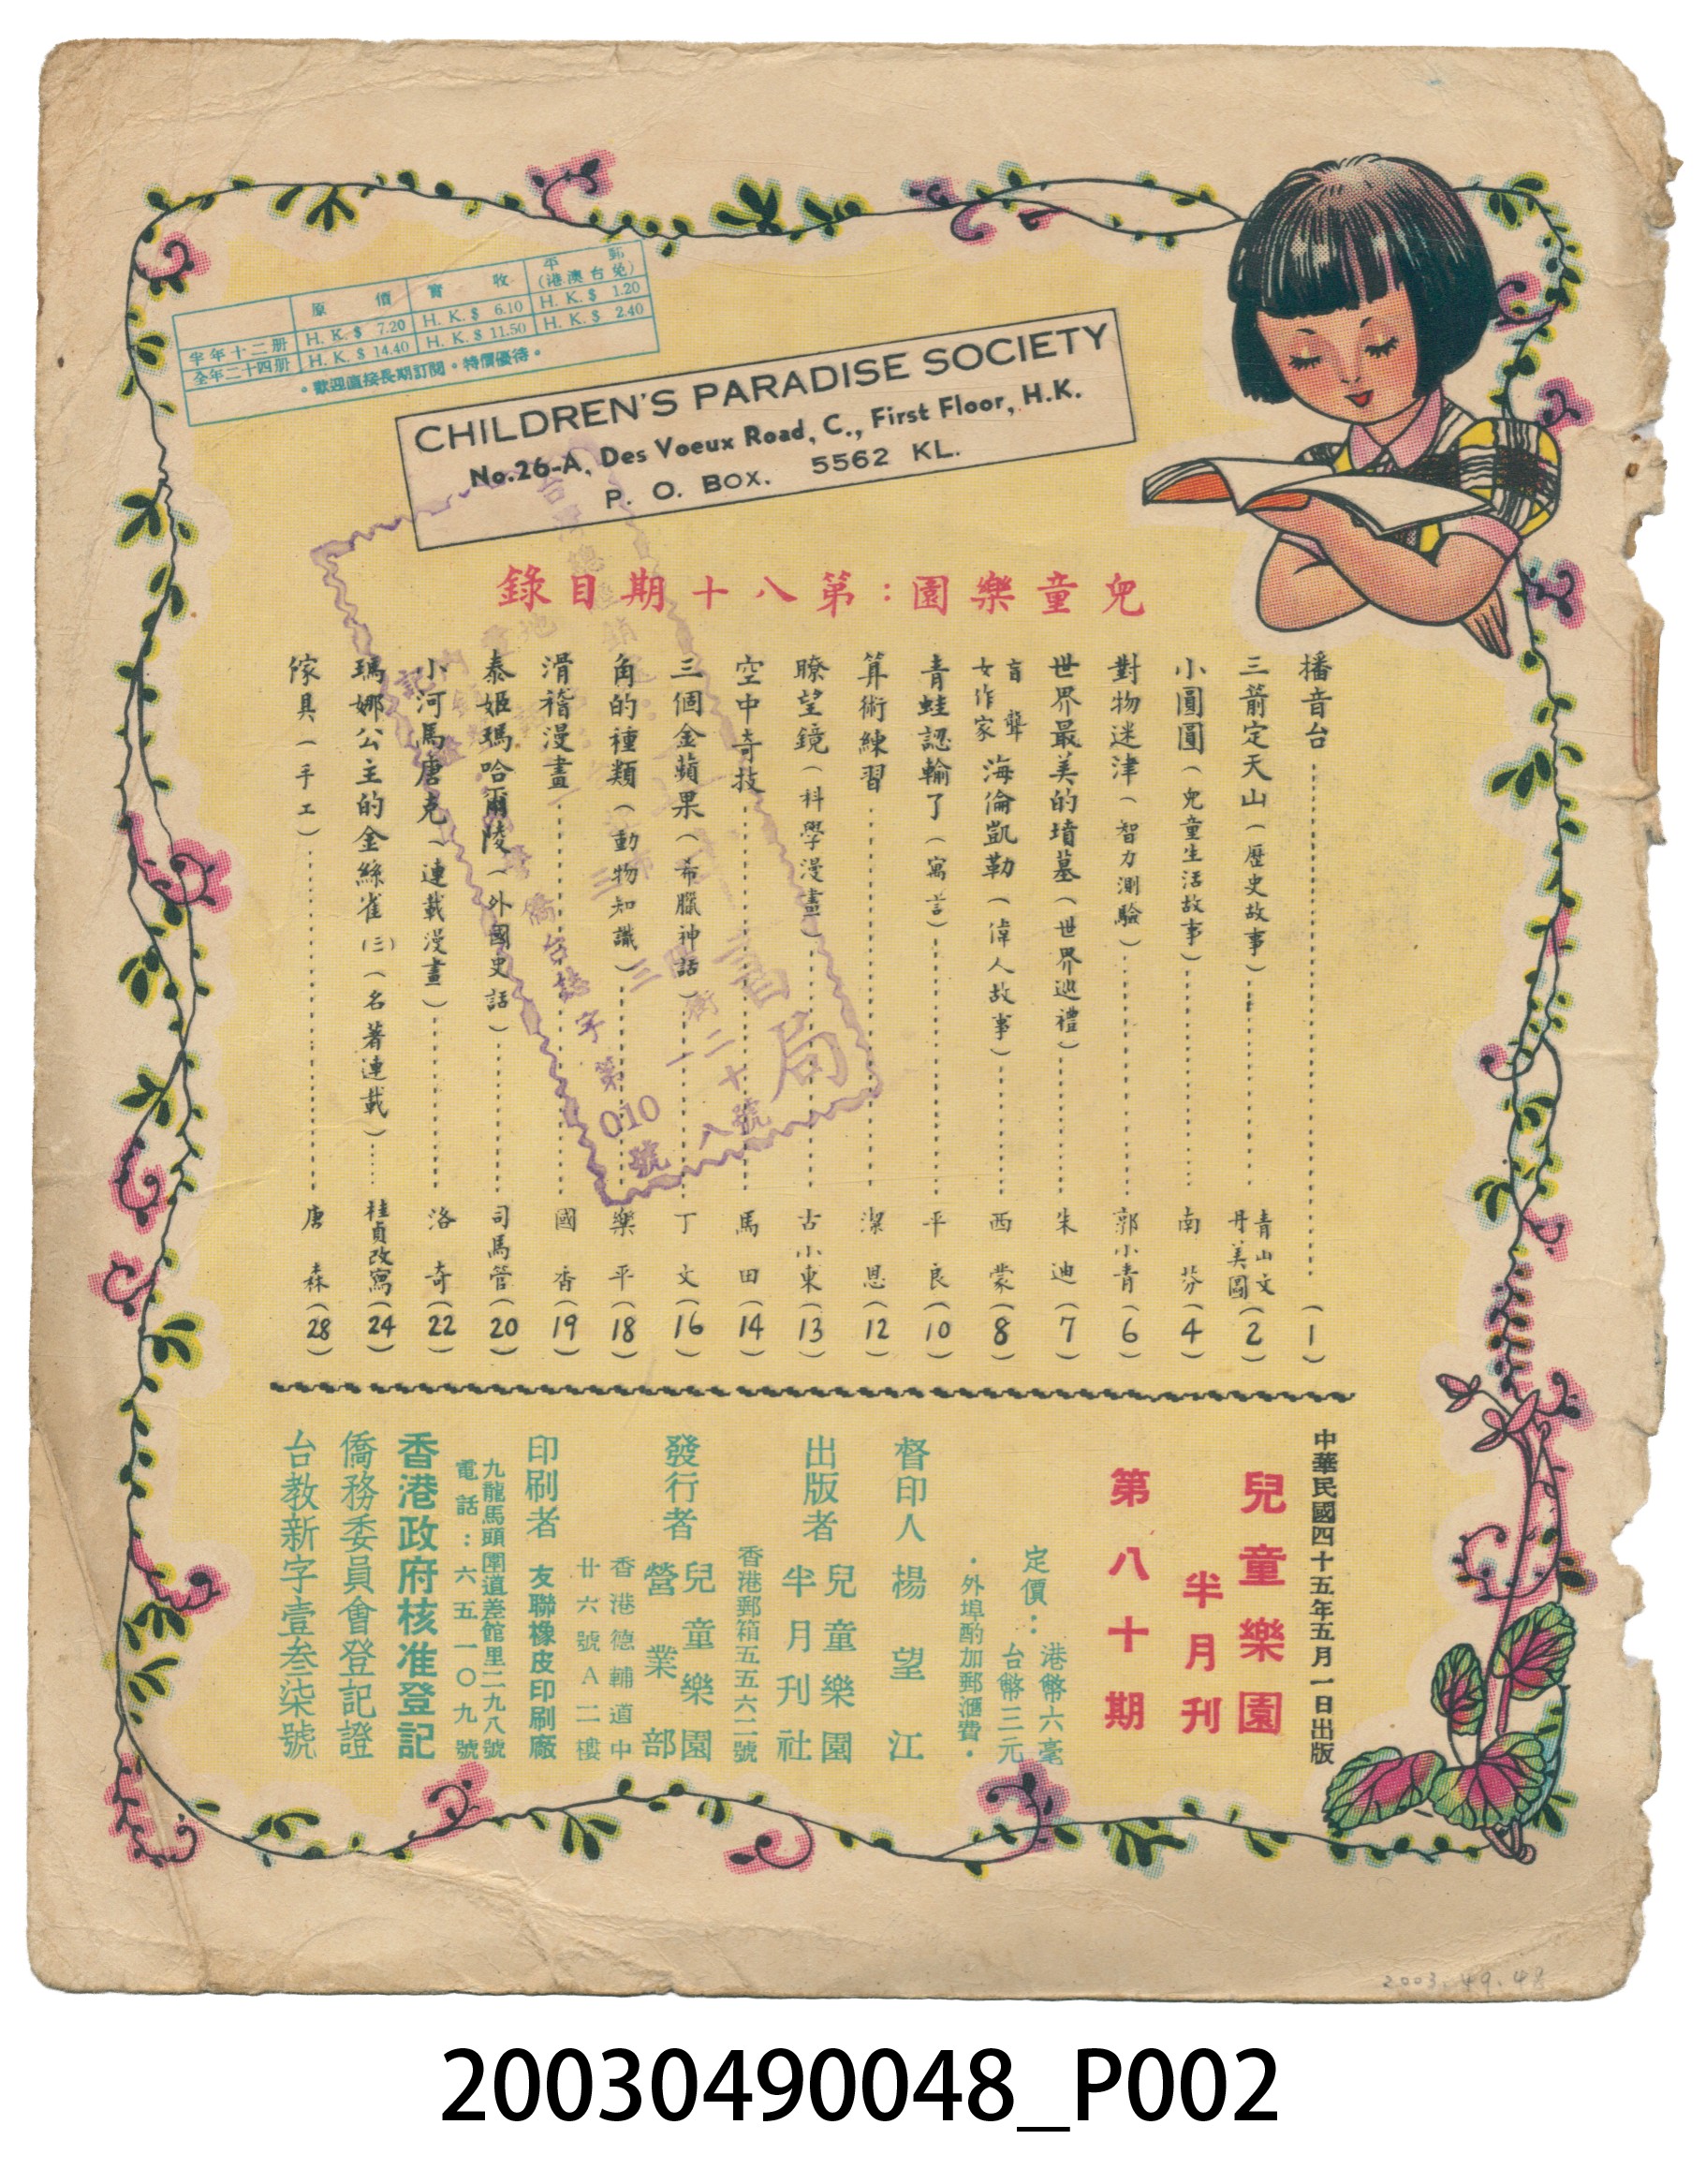 原價 實收 平郵(港澳台免)
半年十二册 H. K. $ 7.20 H. K. $ 6.10 H. K. $ 1.20
全年二十四册 H. K. $ 14.40 H. K. $ 11.50 H. K. $ 2.40
•歡迎直接長期訂閱•特價優待•
CHILDREN'S PARADISE SOCIETY
No.26-A, Des Voeux Road, C., First Floor, H.K.
P. O. BOX. 5562 KL.
兒童樂園：第八十期目錄
播音台……(1)
三箭定天山(歷史故事)……青山文 丹美圖(2)
小圓圓(兒童生活故事)……南芬(4)
對物迷津(智力測驗)……郭小青(6)
世界最美的墳墓(世界巡禮)……朱迪(7)
盲聾女作家海倫凱勒(偉人故事)……西蒙(8)
青蛙認輸了(寓言)……平良(10)
算術練習……潔恩(12)
瞭望鏡(科學漫畫)……古小東(13)
空中奇技……馬田(14)
三個金蘋果(希臘神話)……丁文(16)
角的種類(動物知識)……樂平(18)
滑稽漫畫……國香(19)
泰姬瑪哈爾陵(外國史話)……司馬管(20)
小河馬唐克(連載漫畫)……洛奇(22)
瑪娜公主的金絲雀(三)(名著連載)……桂貞改寫(24)
傢具(手工)……唐森(28)
中華民國四十五年五月一日出版
兒童樂園
半月刊
第八十期
定價：港幣六毫
台幣三元
•外埠酌加郵滙費•
督印人 楊望江
出版者 兒童樂園
半月刊社
香港郵箱五五六二號
發行者 兒童樂園
營業部
香港德輔道中
廿六號A二樓
印刷者 友聯橡皮印刷廠
九龍馬頭圍道差館里二九八號
電話：六五一〇九號
香港政府核准登記
僑務委員會登記證
台教新字壹叁柒號
書局
僑台誌字第010號
2003.49.48
20030490048_P002